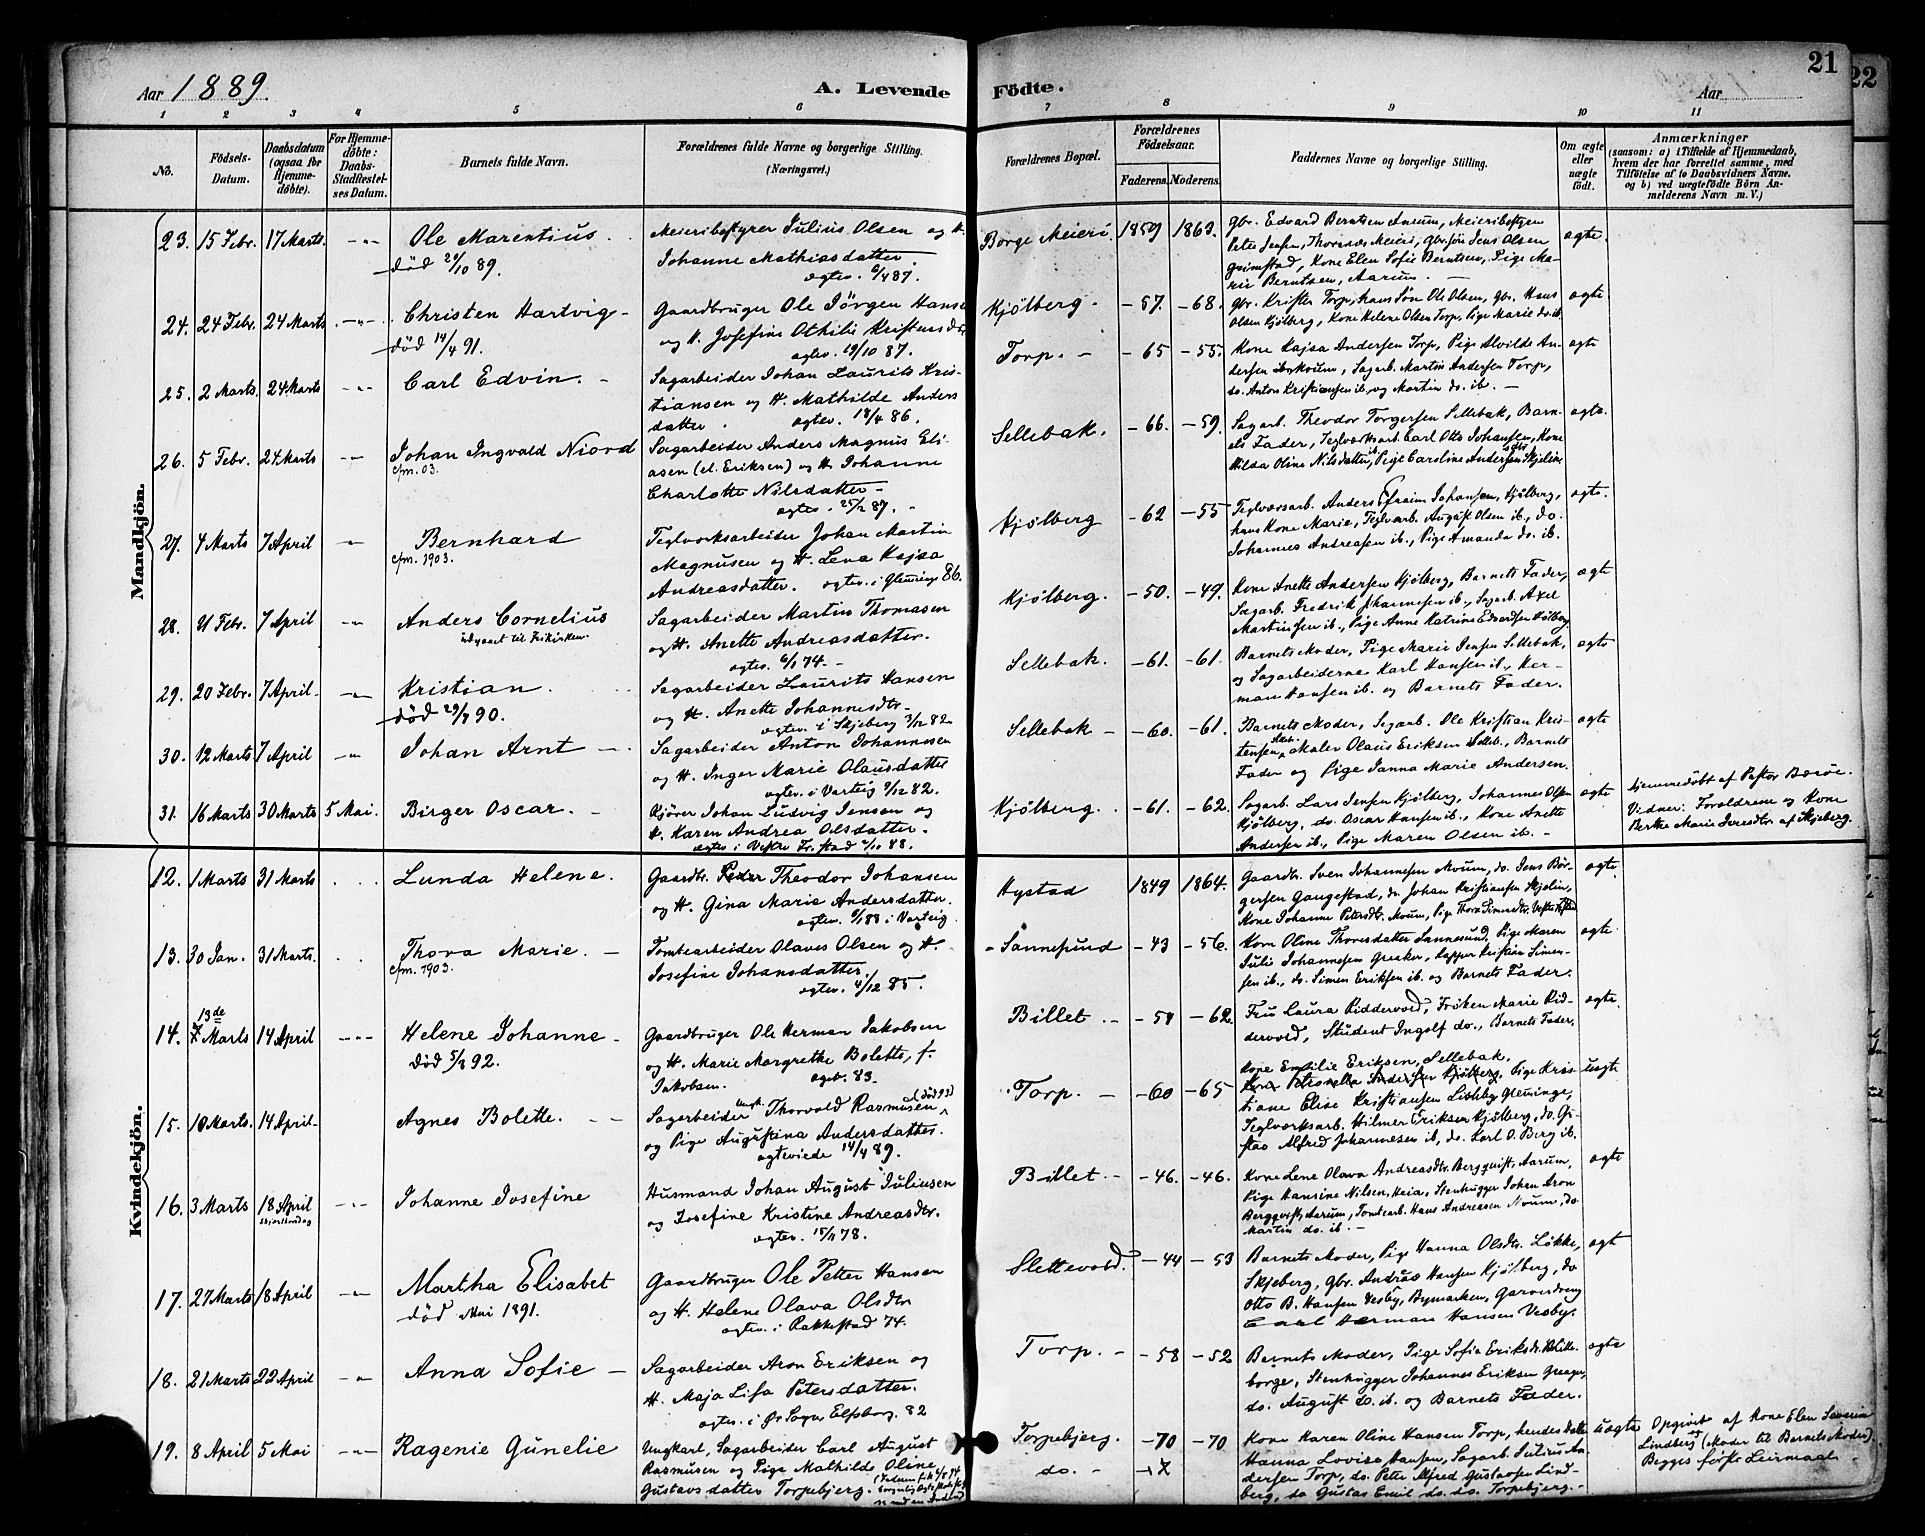 Aar 1889.
A. Levende Födte.
21
22
Aar
1 2 3 4 5 6 7 8 9 10 11
No.
Födsels-Datum.
Daabsdatum (ogsaa for Hjemme-döbte).
For Hjemme-döbte: Daabs-Stadfæstel-ses Datum.
Barnets fulde Navn.
Forældrenes fulde Navne og borgerlige Stilling. (Næringsvei.)
Forældrenes Bopæl.
Forældrenes Födselsaar.
Faderens. Moderens.
Faddernes Navne og borgerlige Stilling.
Om ægte eller uægte födt.
Anmærkninger
(saasom: a) i Tilfælde af Hjemmedaab, hvem der har forrettet samme, med Tilföielse af to Daabsvidners Navne. og b) ved uægtefödte Börn Anmelderens Navn m. V.)
Mandkjön.
23. 15 Febr. 17 Marts. Ole Marentius.
död 20/10 89.
Meieribestyrer Julius Olsen og H.
Johanne Mathiasdatter
ægtev. 6/4 87.
Borge Meieri. 1859 1863.
Gbr. Edvard Berntsen Aarum, Meieribestyrer
Peter Jensen, Thorsnæs Meieri, Gbr. sön Jens Olsen
Grimstad, Kone Elen Sofie Berntsen, Pige Ma-
rie Berntsen, Aarum.
ægte.
24. 24 Febr. 24 Marts. Christen Hartvig
död 14/4 91.
Gaardbruger Ole Jörgen Hansen
og H. Josefine Othilie Kristensdr.
ægtev. 19/10 87.
Kjölberg. -57. -68.
Gbr. Krister Torp, hans Sön Ole Olsen, Gbr. Hans
Olsen Kjölberg, Kone Helene Olsen Torp, Pige Marie do. ib.
ægte.
25. 2 Marts. 24 Marts Carl Edvin.
Sagarbeider Johan Laurits Kris-
tiansen og H. Mathilde Anders
datter. ægtev. 18/4 86.
Torp. -65 -55.
Kone Kajsa Andersen Torp, Pige Alvilde An-
dersen, Sagarb. Martin Andersen Torp,
do. Anton Kristiansen ib. og Martin do. ib.
ægte
26. 5 Febr. 24 Marts Johan Ingvald Niord
cfm. 03.
Sagarbeider Anders Magnus Eli-
asen (el. Eriksen) og H. Johanne
Charlotte Nilsdatter
ægtev. 25/12 87.
Sellebak. -66. -59.
Sagarb. Theodor Torgersen Sellebak, Barn-
ets Fader, Teglværksarb. Carl Otto Johansen, Kone
Hilda Oline Nilsdatter, Pige Caroline Andersen Skjelin
ægte.
27. 4 Marts 7 April Bernhard
cfm. 1903.
Teglverksarbeider Johan Martin
Magnusen og H. Lena Kajsa
Andreasdatter. ægtev. i Glemminge 86.
Kjölberg -62 -55
Teglværksarb. Anders Efraim Johansen, Kjölberg,
hans Kone Marie, Teglværb. August Olsen ib., do.
Johannes Andreasen ib., Pige Amanda do. ib.
ægte.
28. 21 Febr. 7 April Anders Cornelius
udmeldt til Frikirken.
Sagarbeider Martin Thomasen
og H. Anette Andreasdatter.
ægtev. 6/1 74.
Kjölberg. -50. -49.
Kone Anette Andersen Kjölberg, Barnets Fader,
Sagarb. Fredrik Johannesen ib., Sagarb. Axel
Martinsen ib., Pige Anne Katrine Edvardsen Kjölberg
ægte
29. 20 Febr. 7 April. Kristian.
död 29/8 90.
Sagarbeider Laurits Hansen
og H. Anette Johannesdtr.
ægtev. i Skjeberg 3/12 82.
Sellebak. -61. -61.
Barnets Moder, Pige Marie Jensen Sellebak,
og Sagarbeiderne Karl Hansen ib., Her-
man Hansen ib. og Barnets Fader.
ægte
30. 12 Marts 7 April Johan Arnt
Sagarbeider Anton Johannesen
og H. Inger Marie Olausdatter
ægtev. i Varteig 9/12 82.
Sellebak -60. -61.
Barnets Moder, Sagarb. Ole Kristian Kris-
tensen, Maler Olaus Eriksen Selleb., Barnets
Fader og Pige Janna Marie Andersen.
ægte
31. 16 Marts 30 Marts 5 Mai. Birger Oscar.
Kjörer Johan Ludvig Jensen og
H. Karen Andrea Olsdatter.
ægtev. i Vestre Fr.stad 9/10 88.
Kjölberg. -61. -62.
Sagarb. Lars Jensen Kjölberg, Johannes Olsen
Kjölberg, do. Oscar Hansen ib., Kone Anette
Andersen ib., Pige Maren Olsen ib.
ægte
Hjemmedöbt af Pastor Boröe.
Vidner: Forældrene og Kone
Berthe Marie Iversdtr. af Skjeberg.
Kvindekjön.
12. 1 Marts 31 Marts Lunda Helene.
Gaardbr. Peder Theodor Johansen
og H. Gina Marie Andersdatter.
ægtev. 6/1 88 i Varteig.
Hystad 1849 1864.
Gaardbr. Sven Johannesen Moum, do. Jens Bör-
gersen Gaugestad, do. Johan Kristiansen Skjelin,
Kone Johanne Petersdtr. Moum, Pige Thora Simensdtr.
ægte.
13. 30 Jan. 31 Marts. Thora Marie.
cfm. 1903.
Tomtearbeider Olaves Olsen og H.
Josefine Johansdatter.
ægtev. 4/12 85.
Sannesund -43 -56.
Kone Oline Thoresdatter Sannesund, Pige Maren
Julie Johannesen Greaker, Kristian Simen-
sen ib., do. Simen Eriksen ib. og Barnets Fader.
ægte.
14. 13de
7 Marts 14 April Helene Johanne
Död 5/8 92.
Gaardbruger Ole Herman Jakobsen
og H. Marie Margrethe Bolette, f.
Jakobsen. ægtv. 83.
Billet -58 -62
Fru Laura Riddervold, Fröken Marie Rid-
dervold, Student Ingolf do., Barnets Fader.
ægte.
15. 10 Marts. 14 April. Agnes Bolette.
Sagarbeider Ungk. Thorvald Rasmusen (död 92)
og Pige Augustina Andersdatter.
ægteviede 14/4 89.
Torp. -60 -65
Kone Emilie Eriksen, Sellebak,
Kone Petronella Andersen Kjölberg, Pige Kris-
tiane Elise Kristiansen Lisleby Glemminge,
Teglværksarb. Hilmer Eriksen Kjölberg, do. Gu-
stav Alfred Johannesen ib., do. Karl O. Berg ib.
uægt
16. 3 Marts 18 April
Skjærtorsdag
Johanne Josefine
Husmand Johan August Juliusen
og Josefine Kristine Andreasdtr.
ægtev. 15/11 78.
Billet -46. -46.
Kone Lene Olava Andreasdtr. Bergqvist, Aarum,
Pige Hansine Nilsen, Heia, Stenhugger Johan Aron
Bergqvist, Aarum, Tomtearb. Hans Andreasen Moum, do.
Martin do. ib.
ægte
17. 27 Marts 18 April Martha Elisabet
död Mai 1891.
Gaardbruger Ole Petter Hansen
og H. Helene Olava Olsdtr
ægtev. i Rakkestad 74.
Slettevold. -44 -53
Barnets Moder, Pige Hanna Olsdtr. Lökke,
Skjeberg, Gbr. Andreas Hansen Kjölberg, do
Otto B. Hansen Vesby, Bymarken, Gaardbreng
Carl Herman Hansen Vesby.
ægt
18. 21 Marts 22 April Anna Sofie
Sagarbeider Aron Eriksen og
H. Maja Lisa Petersdatter.
ægtev. i Elfsborg. 82
Torp. -58 -52
Barnets Moder, Pige Sofia Eriksdr.
borge, Stenhugger Johannes Eriksen Greaker,
do. August do. ib. og Barnets Fader.
ægte
19. 8 April 5 Mai Ragenie Gunelie
Ungkarl, Sagarbeider Carl August
Rasmusen og Pige Mathilde Oline
Gustavsdatter Torpebjerg.
Torpebjerg. -70 -70
do.
Kone Karen Oline Hansen Torp, hendes Datter
Hanna Lovise Hansen, Sagarb. Julius An-
dersen Torp, do. Peter Alfred Gustavsen Lind-
berg, do Gustav Emil do. do. Torpebjerg.
uægte
Opgivet af Kone Elen Severine
Lindberg (Moder til Barnets Moder).
Begges förste Leiermaal.